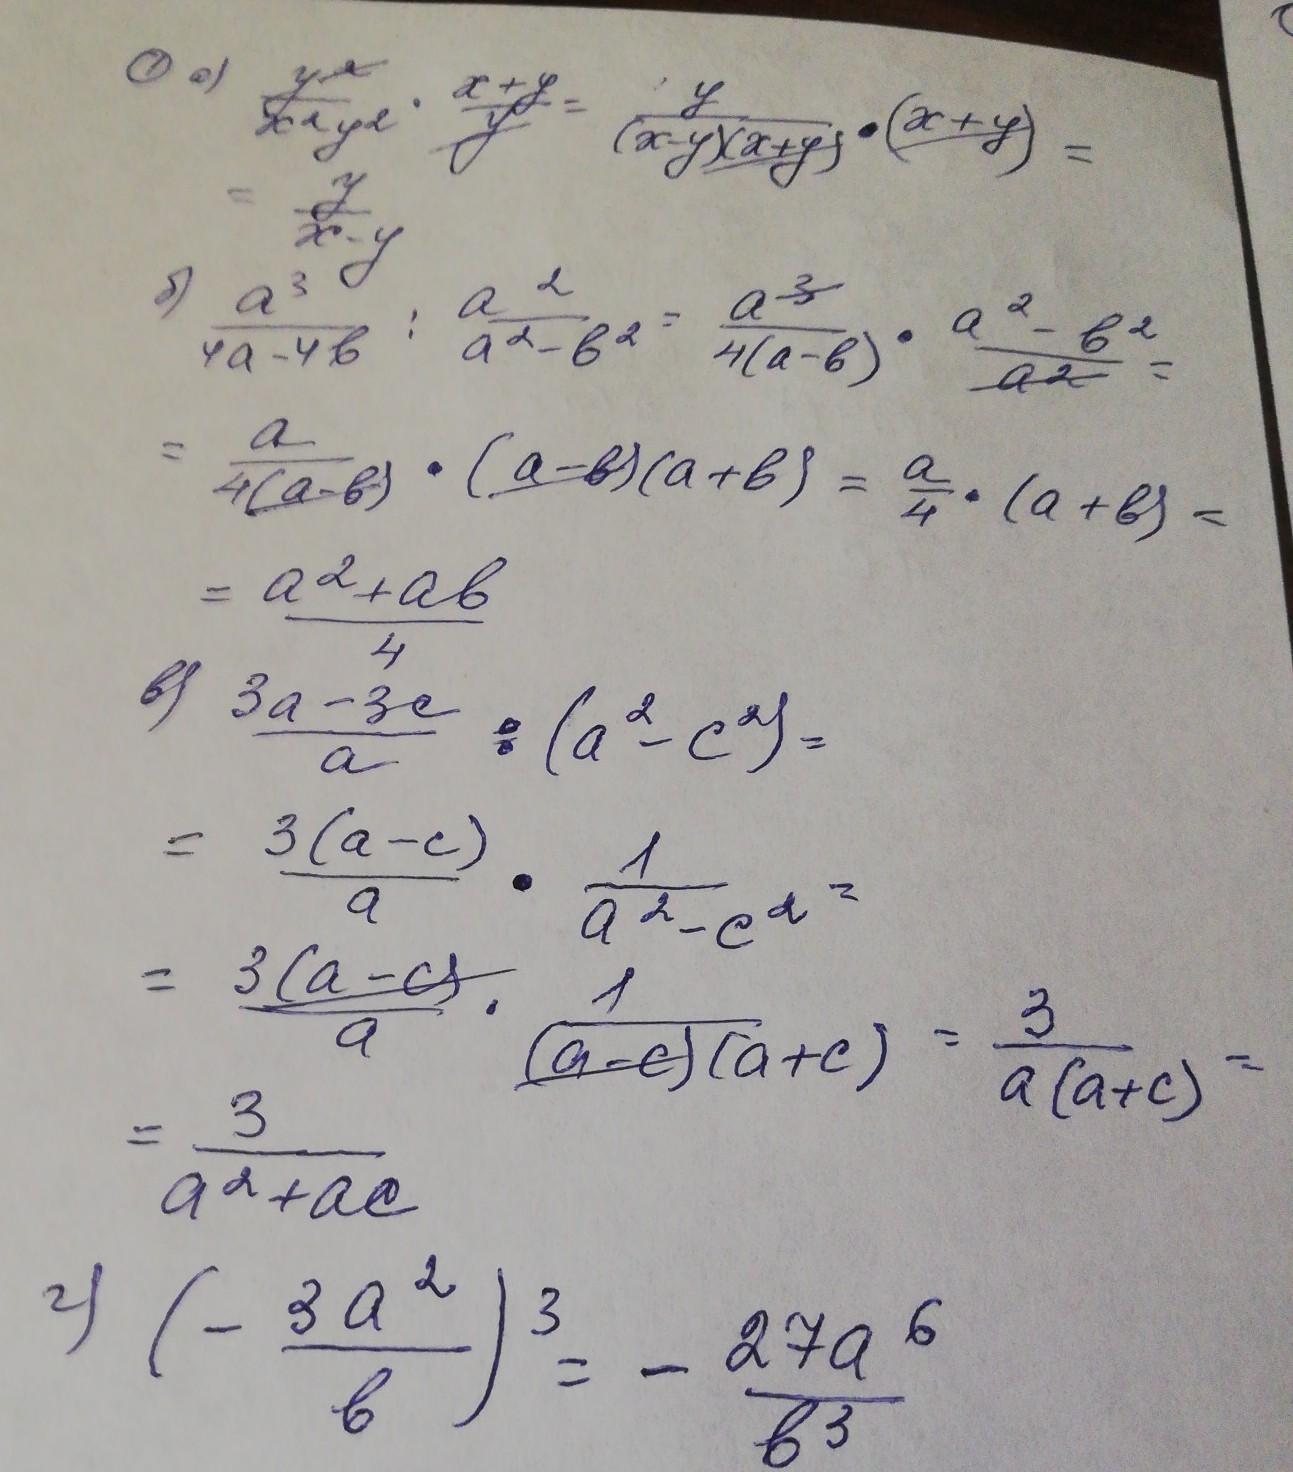 ① а) y²/x²y² · x+y/y = y/(x-y)(x+y) · (x+y) =
= y/x-y
б) a³/4a-4b : a²/a²-b² = a³/4(a-b) · a²-b²/a² =
= a/4(a-b) · (a-b)(a+b) = a/4 · (a+b) =
= a²+ab/4
в) 3a-3c/a : (a²-c²) =
= 3(a-c)/a · 1/a²-c² =
= 3(a-c)/a · 1/(a-c)(a+c) = 3/a(a+c) =
= 3/a²+ac
г) (- 3a²/b)³ = - 27a⁶/b³